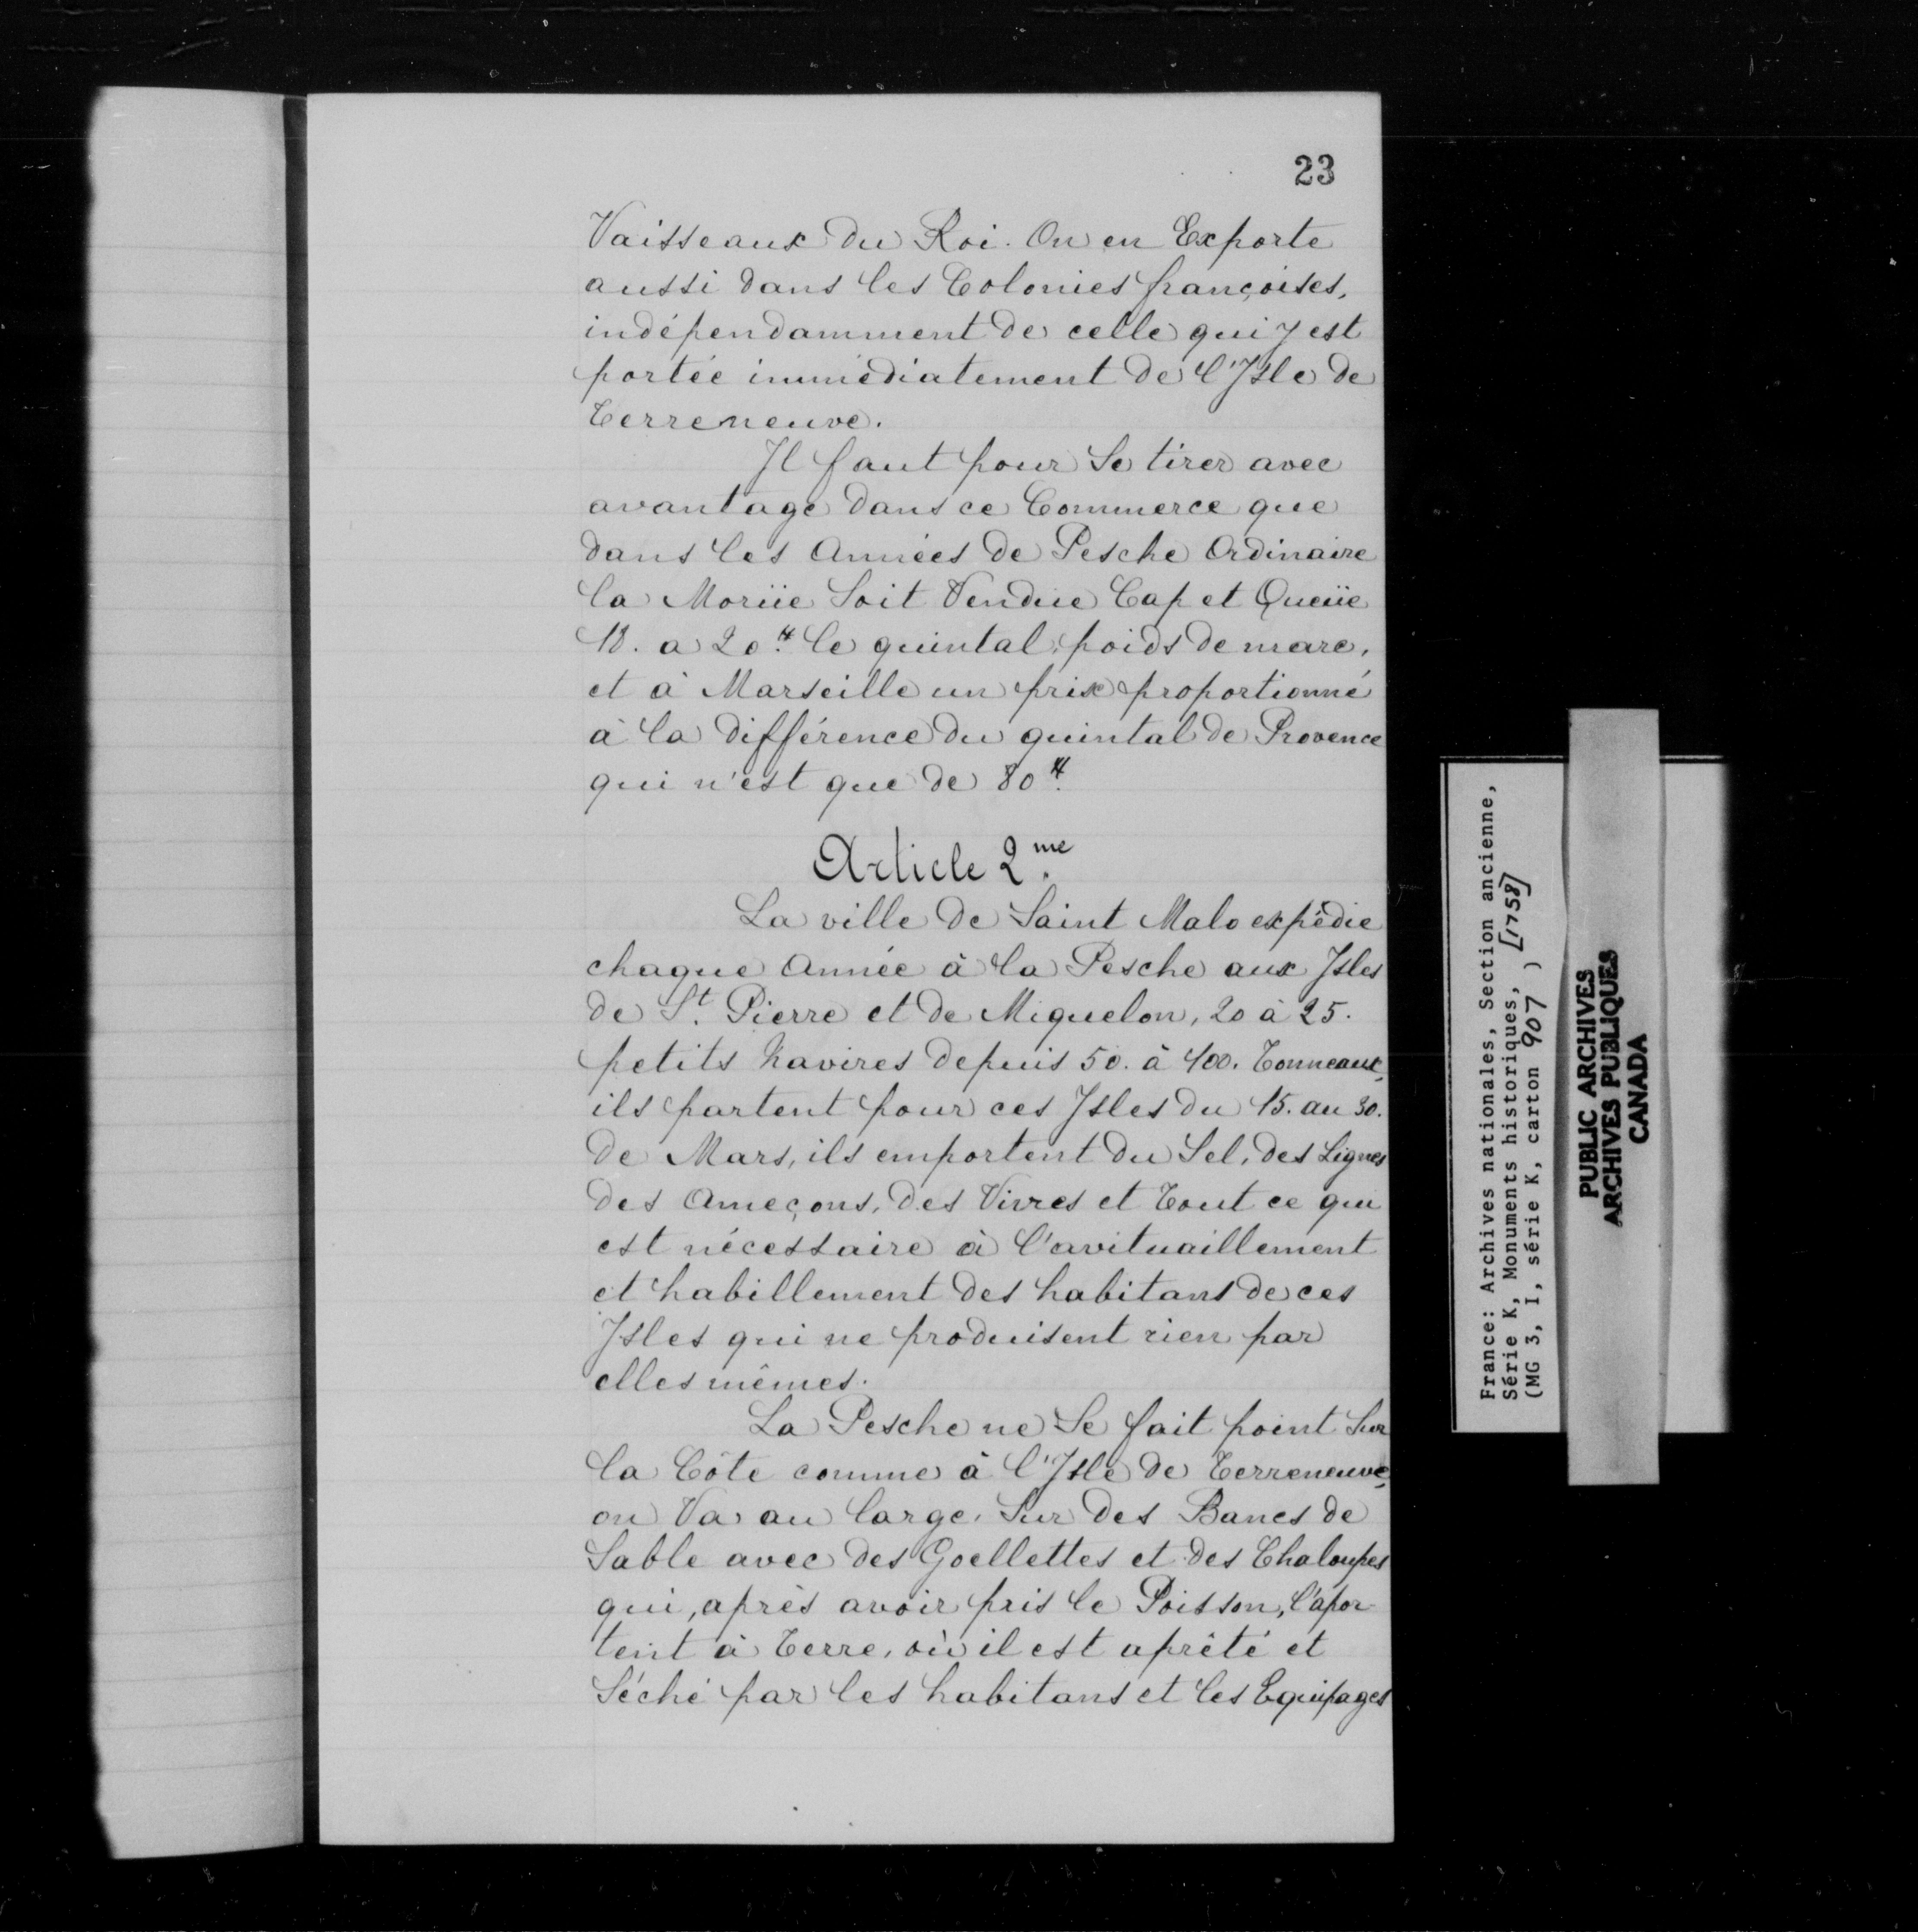 23
Vaisseaux du Roi. On en Exporte
aussi dans les Colonies françoises,
indépendamment de celle qui y est
portée immédiatement de l'Isle de
Terreneuve.
Il faut pour Se tirer avec
avantage dans ce Commerce que
dans les Années de Pesche Ordinaire
la Moruë Soit Vendue Cap et Queüe
18. a 20.₶ le quintal, poids de marc,
et à Marseille un prix proportionné
à la différence du quintal de Provence
qui n'est que de 80₶.
Article 2.me
La ville de Saint Malo expédie
chaque Année à la Pesche aux Isles
de St. Pierre et de Miquelon, 20 à 25.
petits Navires depuis 50. à 400. Tonneaux,
ils partent pour ces Isles du 15. au 30.
de Mars, ils emportent du Sel, des Lignes
des Ameçons, des Vivres et Tout ce qui
est nécessaire à l'avituaillement
et habillement des habitans de ces
Isles qui ne produisent rien par
elles mêmes.
La Pesche ne Se fait point Sur
la Côte comme à l'Isle de Terreneuve,
on Va au large, Sur des Bancs de
Sable avec des Goellettes et des Chaloupes
qui, après avoir pris le Poisson, l'apor-
tent à Terre, où il est aprêté et
Séché par les habitans et les Equipages
France: Archives nationales, Section ancienne,
Série K, Monuments historiques, [1758]
(MG 3, I, série K, carton 907 )
PUBLIC ARCHIVES
ARCHIVES PUBLIQUES
CANADA